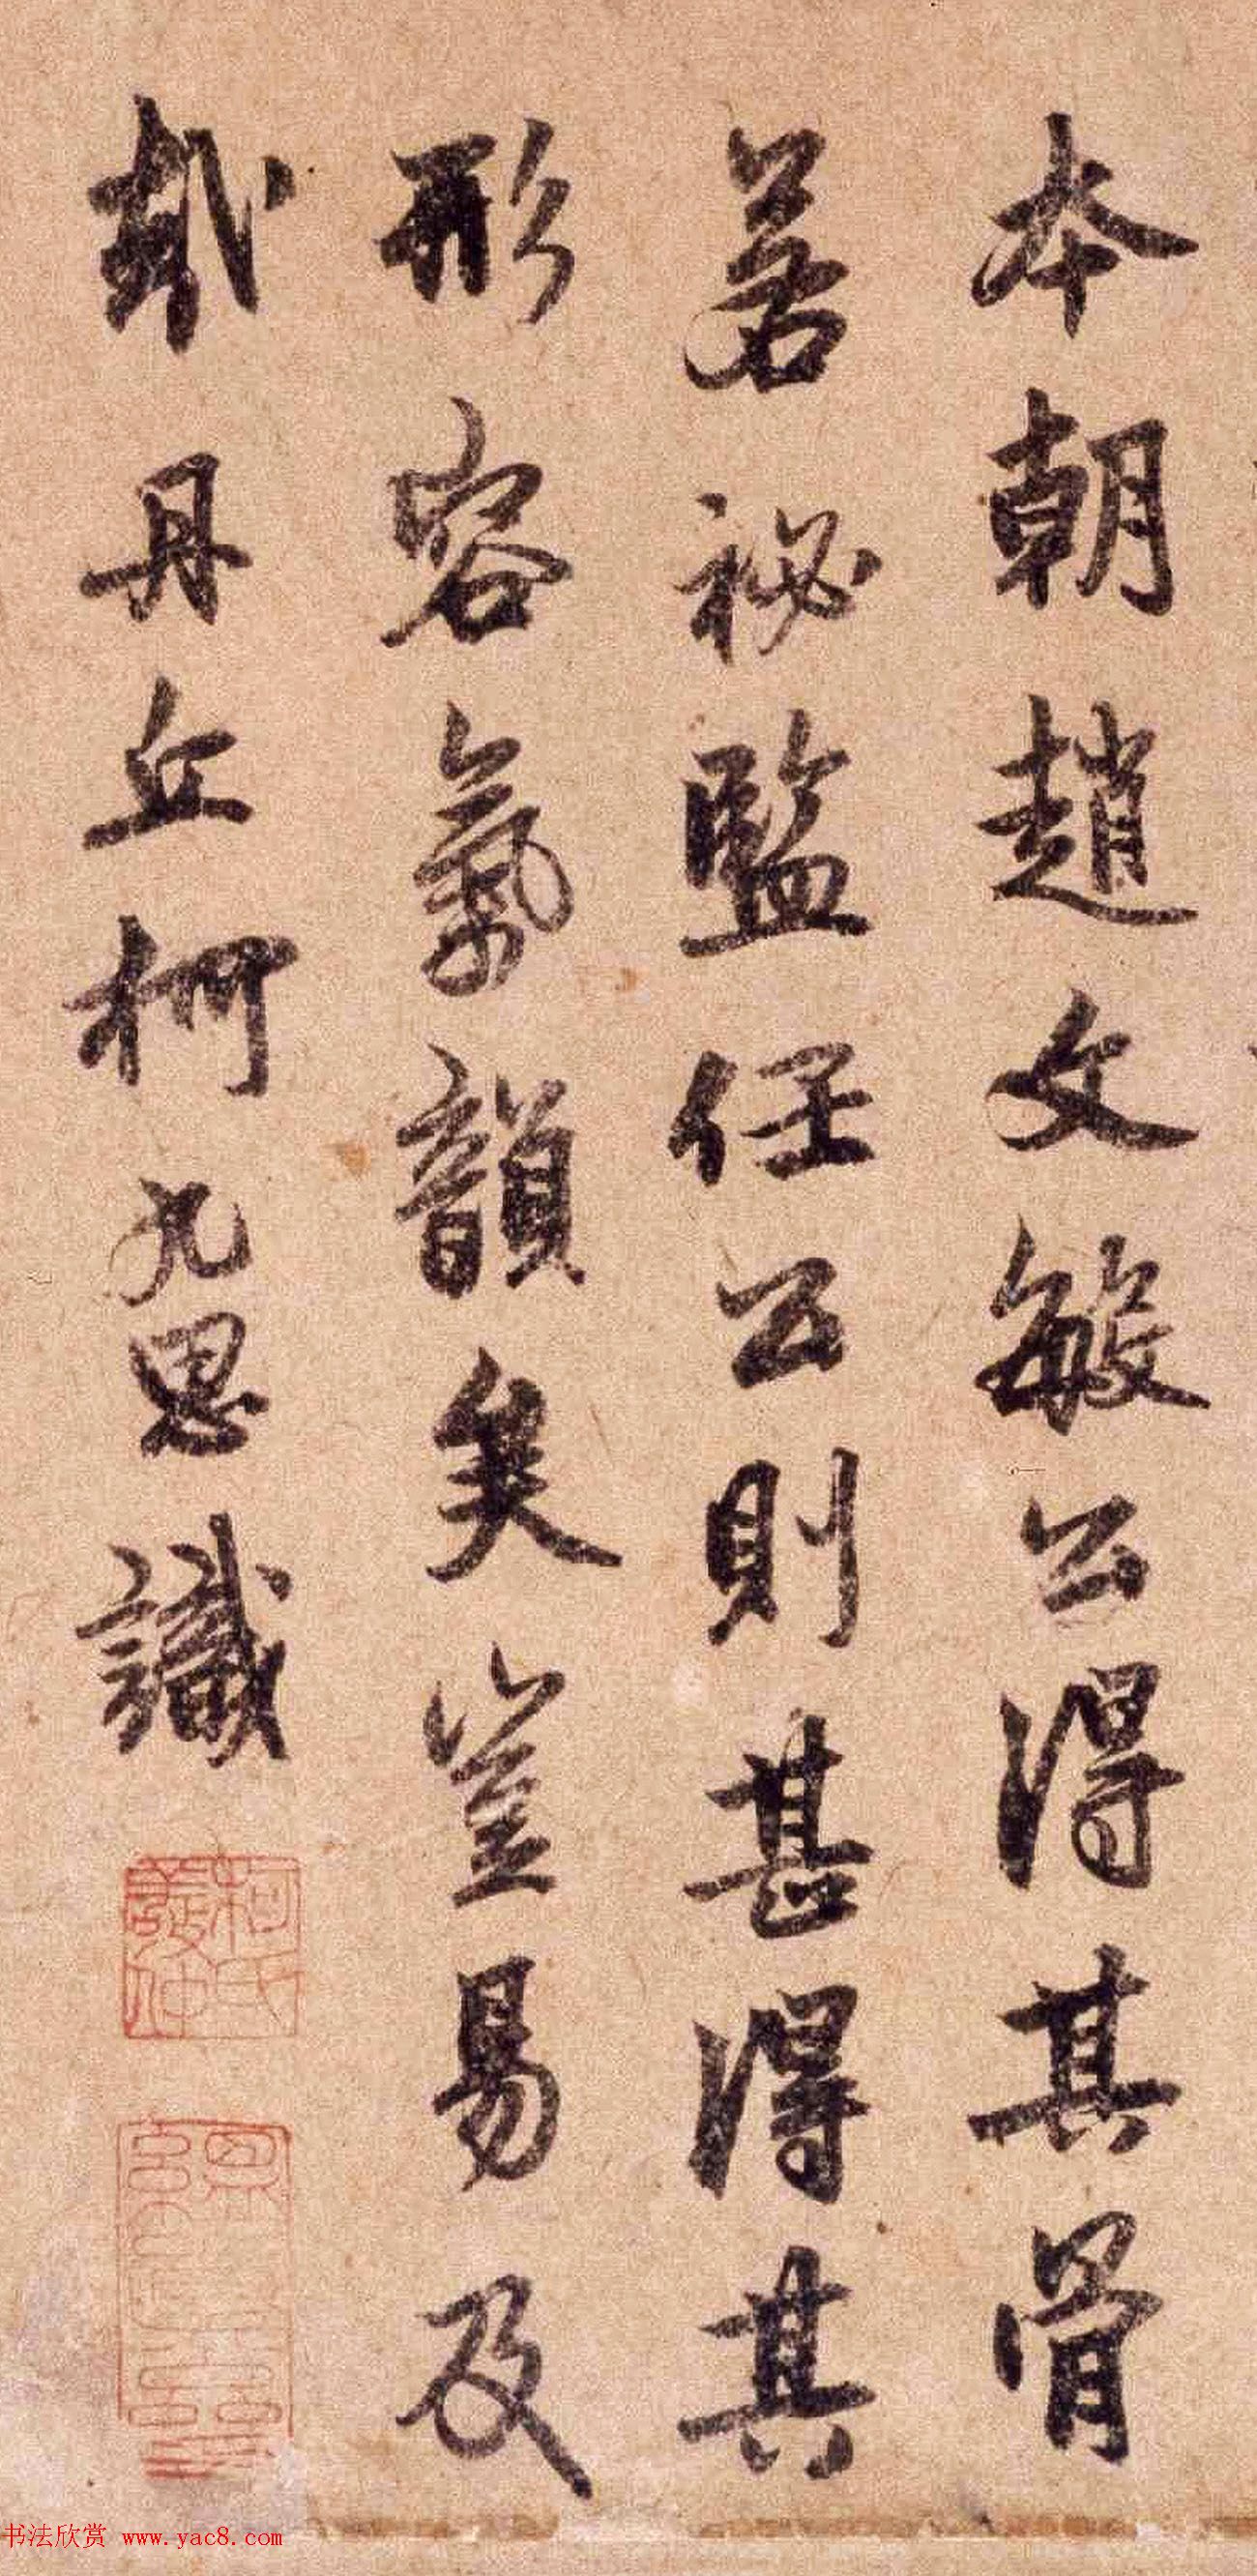 本朝趙文敏公得其骨
若祕監任公則甚得其
形容氣韻矣豈易及
哉丹丘柯九思識
柯氏敬仲
书法欣赏 www.yac8.com